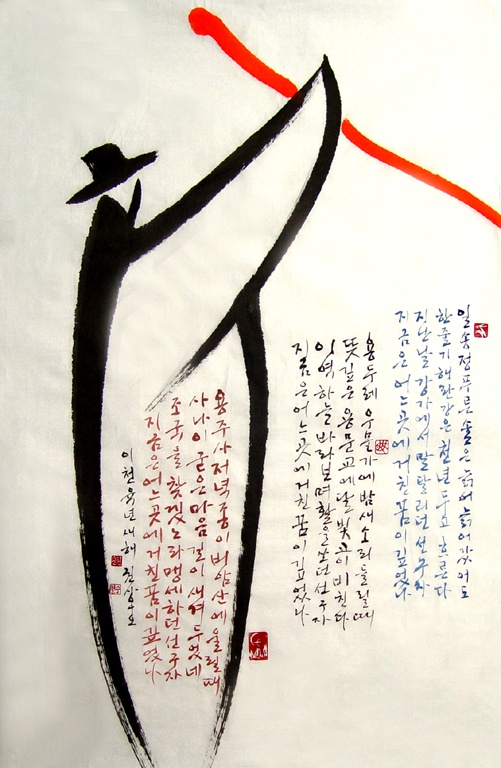 일송정 푸른 솔은 늙어 늙어 갔어도
한줄기 해란강은 천년 두고 흐른다
지난날 강가에서 말 달리던 선구자
지금은 어느 곳에 거친 꿈이 깊었나
용두레 우물가에 밤새 소리 들릴 때
뜻깊은 용문교에 달빛 고이 비친다
이역 하늘 바라보며 활을 쏘던 선구자
지금은 어느 곳에 거친 꿈이 깊었나
용주사 저녁종이 비암산에 울릴 때
사나이 굳은 마음 길이 새겨 두었네
조국을 찾겠노라 맹세하던 선구자
지금은 어느 곳에 거친 꿈이 깊었나
이천육년 새해